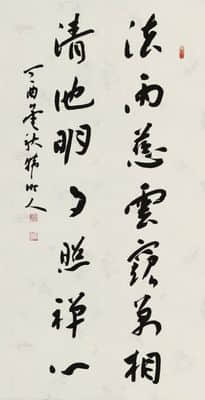 法雨慈雲窺萬相
清池明月照禪心
丁酉 秋 人